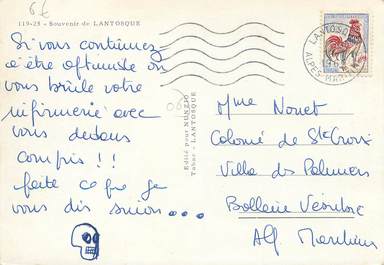 6€
119-25 - Souvenir de LANTOSQUE
Si vous continuez
d'être optimiste on
vous brûle votre
infirmerie avec
vous dedans
compris !!
faite ce que je
vous dis sinon...
Edité pour NUNZIO
Tabac - LANTOSQUE
06
LANTOSQUE
ALPES-MARITIMES
Mme Nonet
Colonie de Ste Croix
Villa des Palmiers
Bollene Vésubie
Alp Maritimes